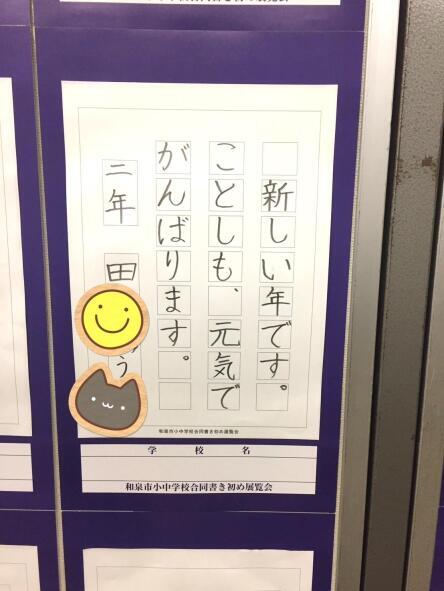 新しい年です。
ことしも、元気で
がんばります。
二年 田 う
和泉市小中学校合同書き初め展覧会
学校名
和泉市小中学校合同書き初め展覧会